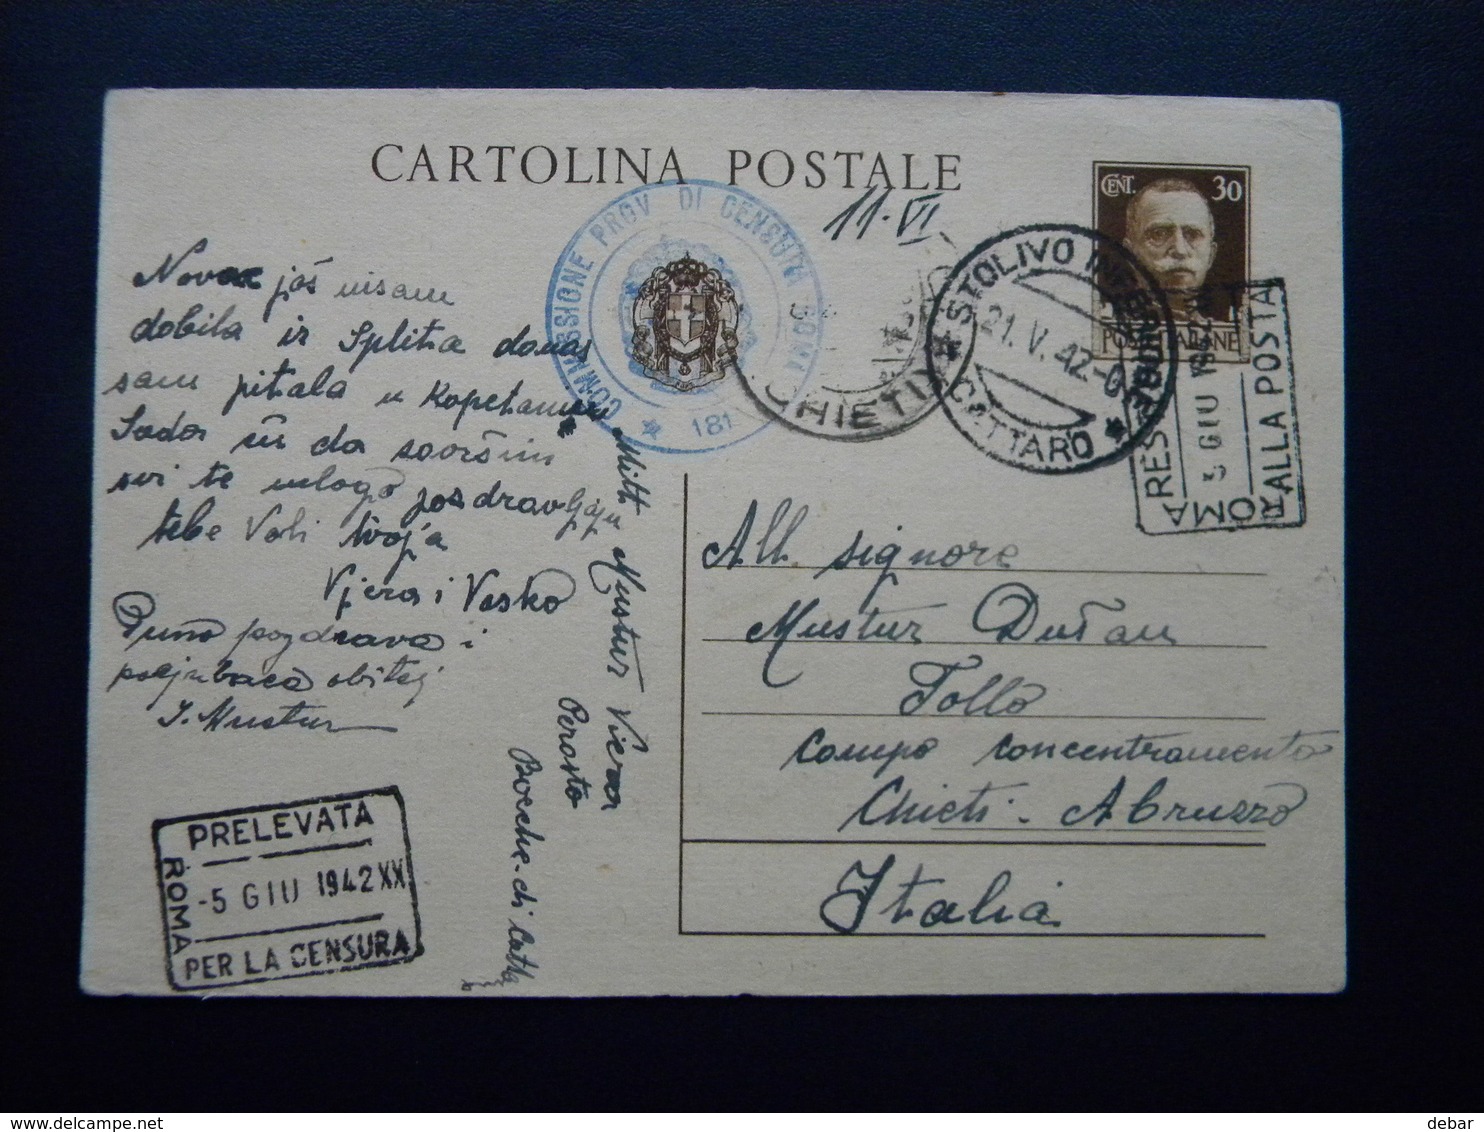 CARTOLINA POSTALE
CENT. 30
POSTE ITALIANE
11-VI
COMMISSIONE PROV DI CENSURA ROMA
181
CHIETI
STOLIVO INFERIORE
21.V.42
CATTARO
RESTITUITA ALLA POSTA
ROMA
5 GIU 1942
Novac još nisam
dobila iz Splita danas
sam pitala u Kopetaniji
Sada ću da savršim
svi te mlogo pozdravljaju
tebe Voli tvoja
Vjera i Vasko
Puno pozdrava i
poljubaca obitelj
J. Mustur
Mitt Mustur Viera
Perasto
Bocche-di Catta
All. signore
Mustur Dušan
Tollo
Campo concentramento
Chieti - Abruzzo
Italia
PRELEVATA
ROMA
-5 GIU 1942 XX
PER LA CENSURA
debar